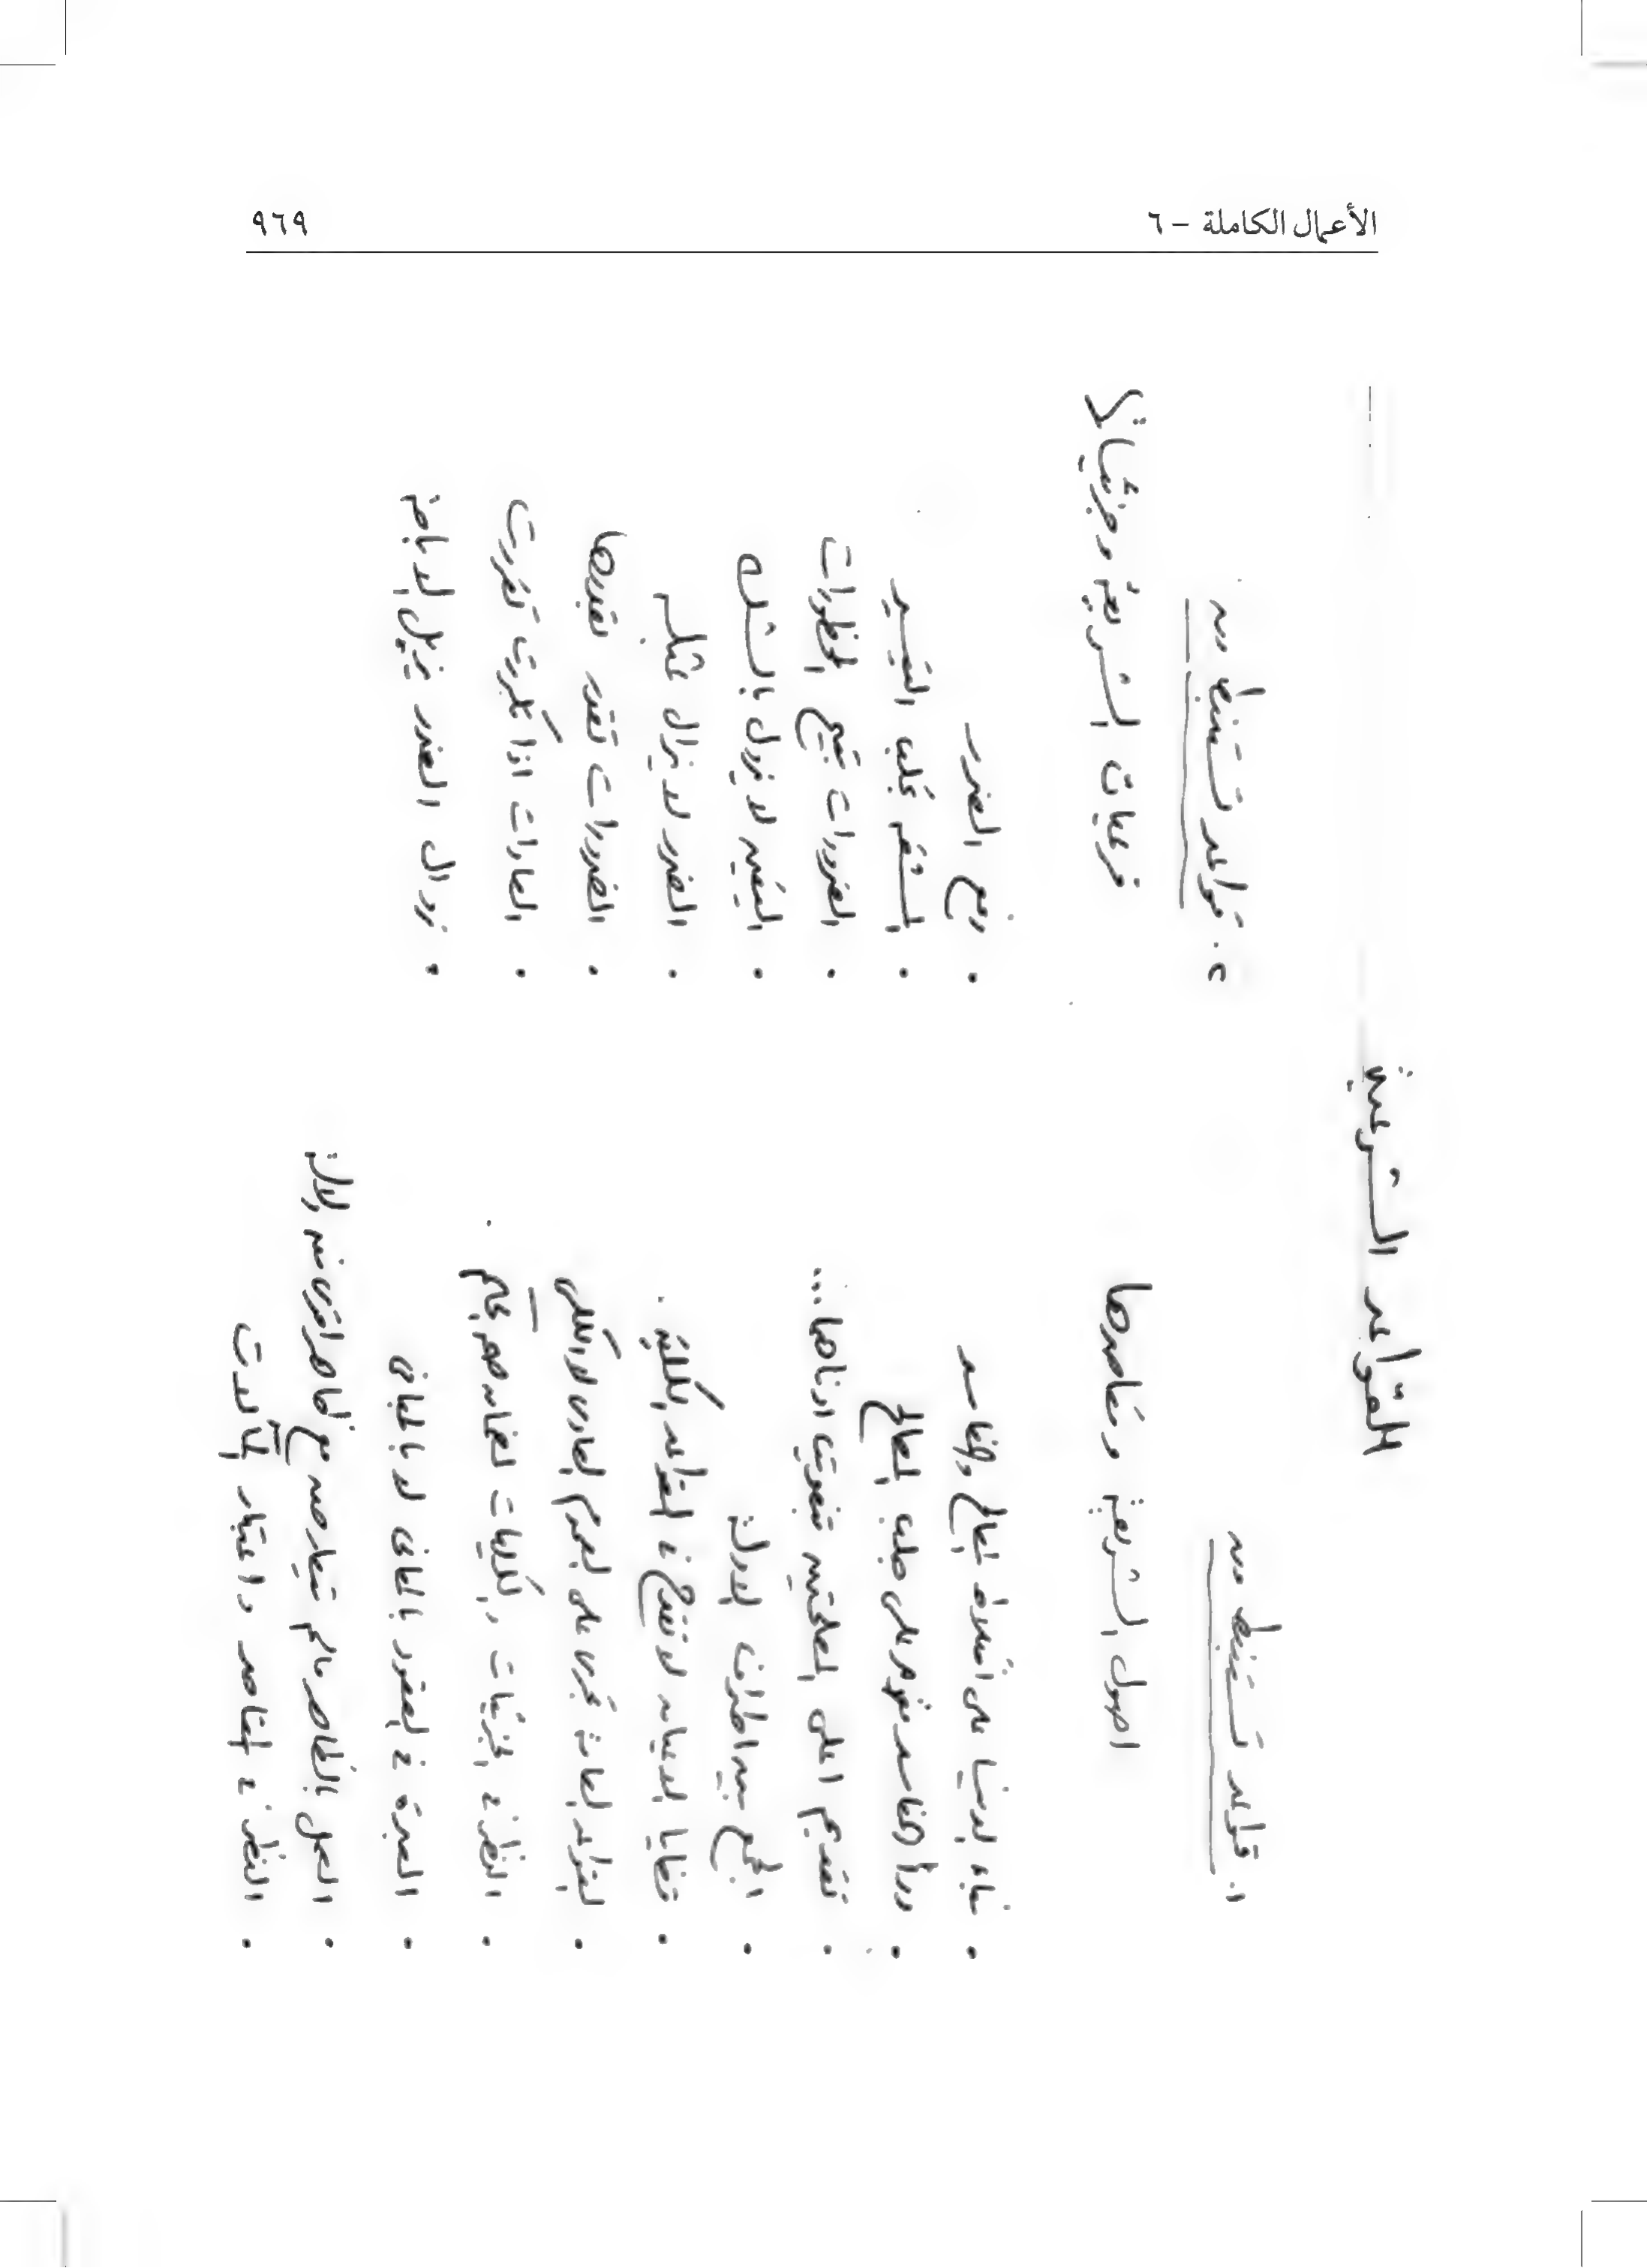 الأعمال الكاملة – ٦
٩٦٩
القواعد الشرعية
١. قواعد تستنبط من
أصول الشريعة ومقاصدها
• بناء الدنيا على المصالح والمفاسد
• درء المفاسد مقدم على جلب المصالح
• تقديم أعلى المصلحتين بتفويت أدناهما...
• الجمع بين أطراف الأدلة
• قضايا الأعيان لا تقدح في القواعد الكلية.
• العوائد العامة تجري على العموم العادي لا الكلي
• النظر في الجزئيات والكليات
• العبرة في العقود بالمعاني لا بالمباني
• العمل بالظاهر ما لم يتعارض مع ظاهر أقوى منه دلالة
• النظر في المقاصد واعتبار المآلات
٢. قواعد تستنبط من
فرعيات الشريعة وجزئياتها
• رفع الضرر
• المشقة تجلب التيسير
• الضرورات تبيح المحظورات
• اليقين لا يزول بالشك
• الضرر لا يزال بمثله
• الضرورات تقدر بقدرها
• العادات إذا تكررت تقررت
• زوال العذر يزيل الإباحة